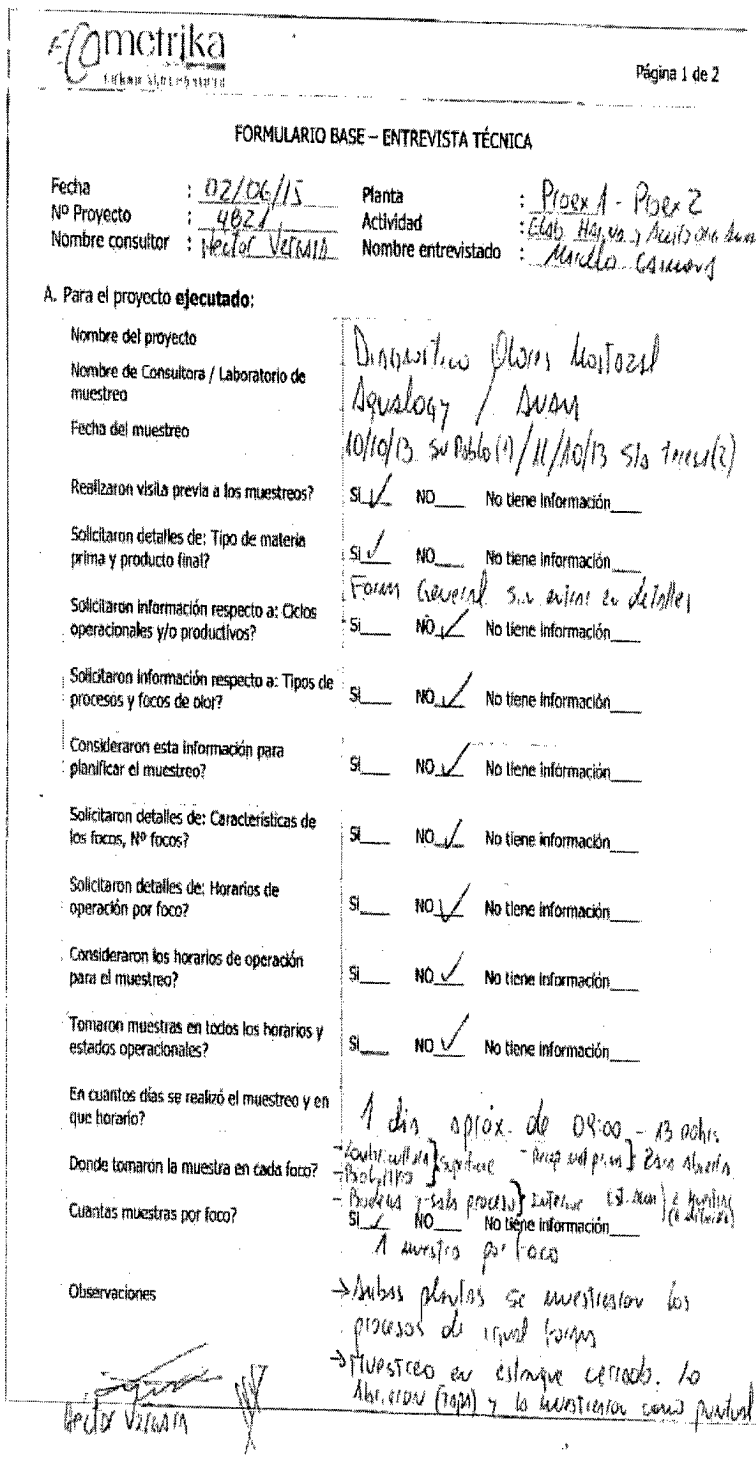 ECOmetrika
Página 1 de 2
FORMULARIO BASE – ENTREVISTA TÉCNICA
Fecha : 02/06/15 Planta : Proex 1 - Proex 2
Nº Proyecto : 4821 Actividad : Elab Harina y Aceite
Nombre consultor : Hector Vergara Nombre entrevistado :
A. Para el proyecto ejecutado:
Nombre del proyecto Diagnostico Olores Mostazal
Nombre de Consultora / Laboratorio de
muestreo Aqualogy /
Fecha del muestreo 10/10/13 Sn Pablo (1) / 11/10/13 Sta teresa (2)
Realizaron visita previa a los muestreos? Si ✓ NO___ No tiene Información___
Solicitaron detalles de: Tipo de materia
prima y producto final? Si ✓ NO___ No tiene Información___
Form General sin entrar en detalles
Solicitaron información respecto a: Ciclos
operacionales y/o productivos? Si___ NO ✓ No tiene Información___
Solicitaron información respecto a: Tipos de
procesos y focos de olor? Si___ NO ✓ No tiene información___
Consideraron esta información para
planificar el muestreo? Si___ NO ✓ No tiene información___
Solicitaron detalles de: Características de
los focos, Nº focos? Si___ NO ✓ No tiene información___
Solicitaron detalles de: Horarios de
operación por foco? Si___ NO ✓ No tiene información___
Consideraron los horarios de operación
para el muestreo? Si___ NO ✓ No tiene información___
Tomaron muestras en todos los horarios y
estados operacionales? Si___ NO ✓ No tiene información___
En cuantos días se realizó el muestreo y en
que horario? 1 dia aprox. de 09:00 - 13:00 hrs
Donde tomaron la muestra en cada foco? - Lombricultura - Biofiltro } Superficie - Recep mat prima } Zona Abierta
- Bodegas y sala proceso } Interior
Cuantas muestras por foco? Si ✓ NO___ No tiene información___
1 muestra por foco
Observaciones → Ambas plantas se muestrearon los
procesos de igual forma
→ Muestreo en estanque cerrado. Lo
Abrieron (tapa) y lo muestrearon como puntual
Hector Vergara